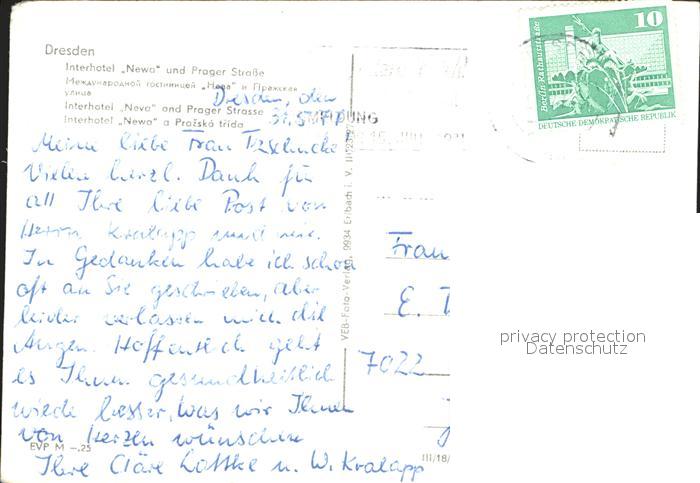 Dresden
Interhotel „Newa" und Prager Straße
Международной гостиницей „Нева" и Пражская
улица
Interhotel „Neva" and Prager Strasse
Interhotel „Newa" a Pražská třída
Dresden, den
31.5.
Meine liebe Frau
Vielen herzl. Dank für
all Ihre liebe Post von
Herrn Kralapp und mir.
In Gedanken habe ich schon
oft an Sie geschrieben, aber
leider verlassen mich die
Augen. Hoffentlich geht
es Ihnen gesundheitlich
wieder besser, was wir Ihnen
von Herzen wünschen
Ihre Cläre Lottke u. W. Kralapp
EVP M –.25
VEB-Foto-Verlag 9934 Erlbach i. V.
III/18/
10
Berlin, Rathausstraße
DEUTSCHE DEMOKRATISCHE REPUBLIK
Frau
E. T
7022
privacy protection
Datenschutz